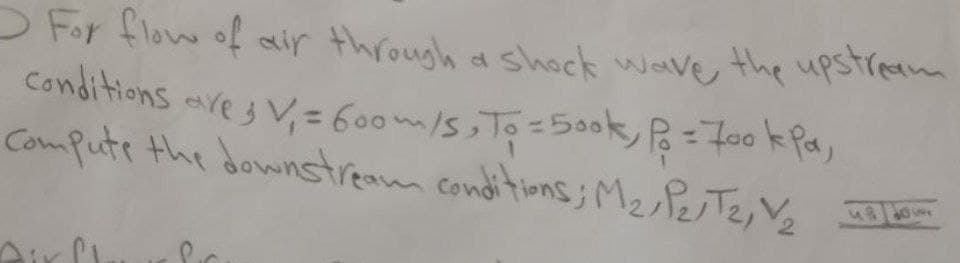 For flow of air through a shock wave, the upstream
conditions are; V₁ = 600 m/s, T₀₁ = 500k, P₀₁ = 700 kPa,
Compute the downstream conditions; M₂, P₂, T₂, V₂